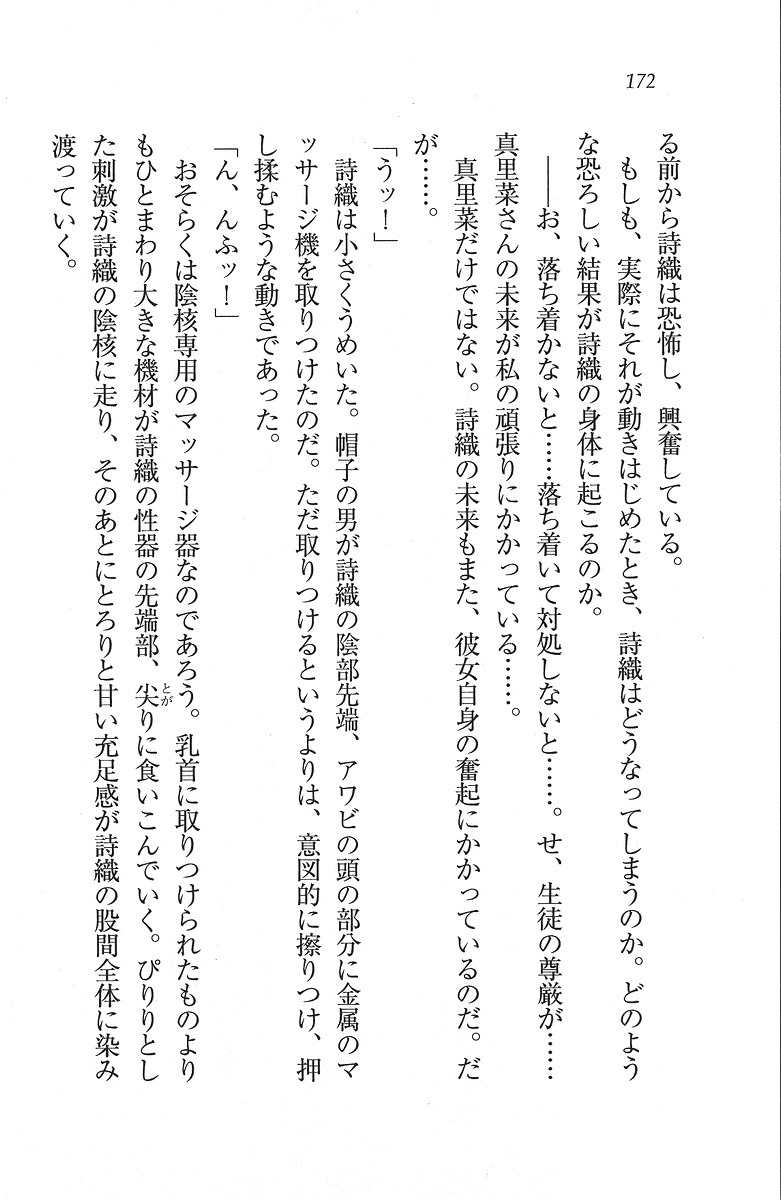 172
る前から詩織は恐怖し、興奮している。
もしも、実際にそれが動きはじめたとき、詩織はどうなってしまうのか。どのよう
な恐ろしい結果が詩織の身体に起こるのか。
――お、落ち着かないと……落ち着いて対処しないと……。せ、生徒の尊厳が……
真里菜さんの未来が私の頑張りにかかっている……。
真里菜だけではない。詩織の未来もまた、彼女自身の奮起にかかっているのだ。だ
が……。
「うッ！」
詩織は小さくうめいた。帽子の男が詩織の陰部先端、アワビの頭の部分に金属のマ
ッサージ機を取りつけたのだ。ただ取りつけるというよりは、意図的に擦りつけ、押
し揉むような動きであった。
「ん、んふッ！」
おそらくは陰核専用のマッサージ器なのであろう。乳首に取りつけられたものより
もひとまわり大きな機材が詩織の性器の先端部、尖りに食いこんでいく。ぴりりとし
とが
た刺激が詩織の陰核に走り、そのあとにとろりと甘い充足感が詩織の股間全体に染み
渡っていく。